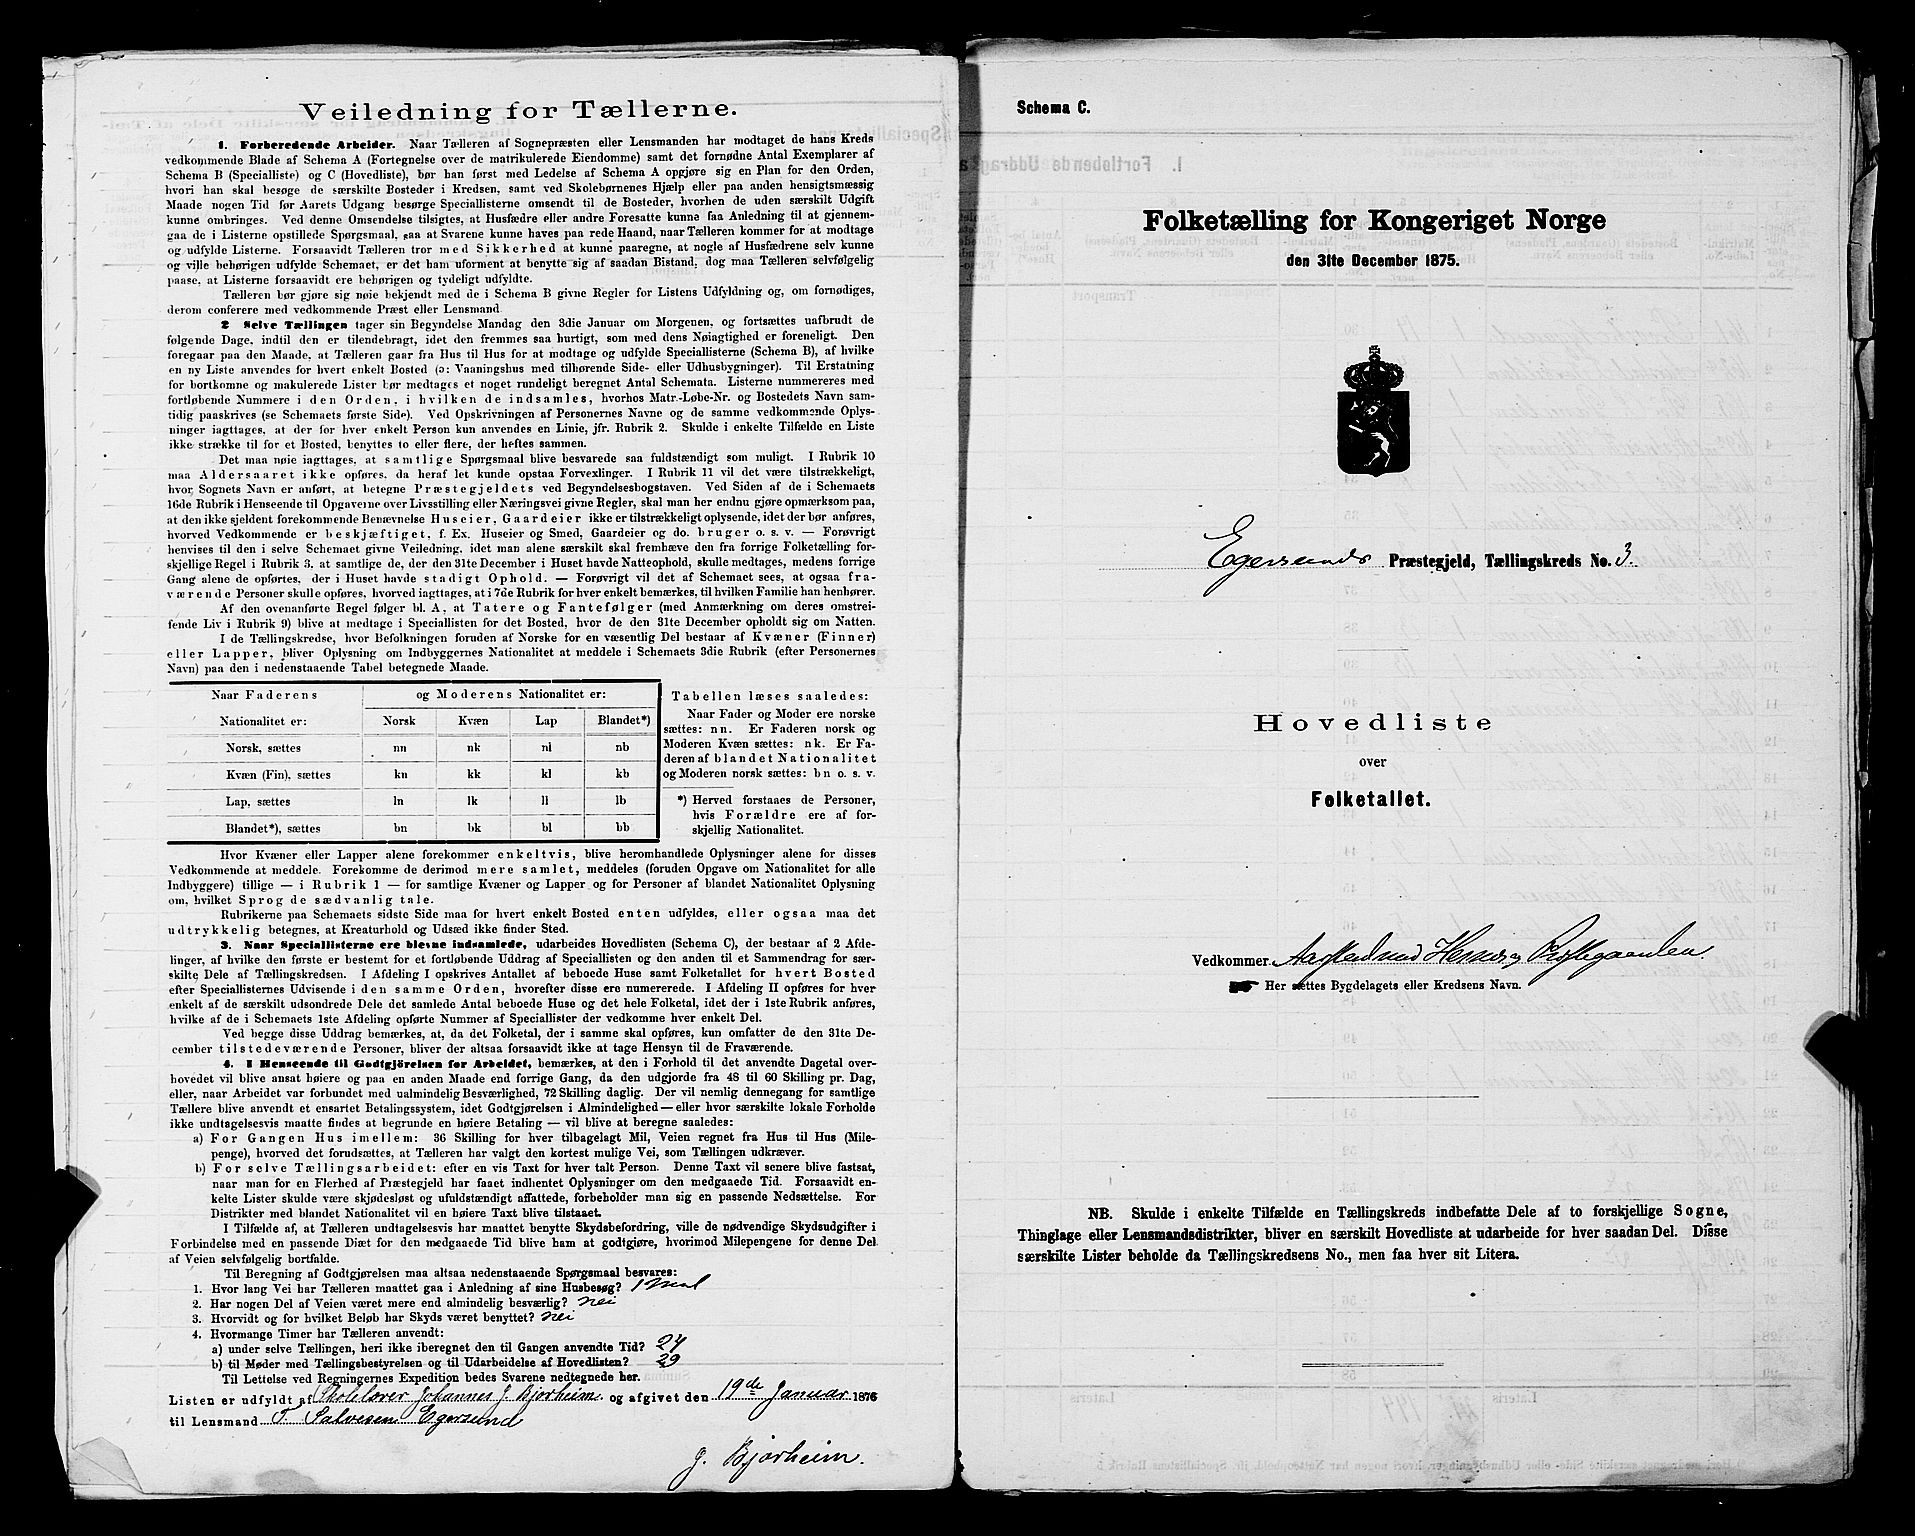 Veiledning for Tællerne.
1. Forberedende Arbeider. Naar Tælleren af Sognepræsten eller Lensmanden har modtaget de hans Kreds
vedkommende Blade af Schema A (Fortegnelse over de matrikulerede Eiendomme) samt det fornødne Antal Exemplarer af
Schema B (Specialliste) og C (Hovedliste), bør han først med Ledelse af Schema A opgjøre sig en Plan for den Orden,
hvori han skal besøge de særskilte Bosteder i Kredsen, samt ved Skolebørnenes Hjælp eller paa anden hensigtsmæssig
Maade nogen Tid før Aarets Udgang besørge Speciallisterne omsendt til de Bosteder, hvorhen de uden særskilt Udgift
kunne ombringes. Ved denne Omsendelse tilsigtes, at Husfædre eller andre Foresatte kunne faa Anledning til at gjennem-
gaa de i Listerne opstillede Spørgsmaal, saa at Svarene kunne haves paa rede Haand, naar Tælleren kommer for at modtage
og udfylde Listerne. Forsaavidt Tælleren tror med Sikkerhed at kunne paaregne, at nogle af Husfædrene selv kunne
og ville behørigen udfylde Schemaet, er det ham uforment at benytte sig af saadan Bistand, dog maa Tælleren selvfølgelig
paase, at Listerne forsaavidt ere behørigen og tydeligt udfyldte.
Tælleren bør gjøre sig nøie bekjendt med de i Schema B givne Regler for Listens Udfyldning og, om fornødiges,
derom conferere med vedkommende Præst eller Lensmand.
2 Selve Tællingen tager sin Begyndelse Mandag den 3die Januar om Morgenen, og fortsættes uafbrudt de
følgende Dage, indtil den er tilendebragt, idet den fremmes saa hurtigt, som med dens Nøiagtighed er foreneligt. Den
foregaar paa den Maade, at Tælleren gaar fra Hus til Hus for at modtage og udfylde Speciallisterne (Schema B), af hvilke
en ny Liste anvendes for hvert enkelt Bosted (ɔ: Vaaningshus med tilhørende Side- eller Udhusbygninger). Til Erstatning
for bortkomne og makulerede Lister bør medtages et noget rundeligt beregnet Antal Schemata. Listerne nummereres med
fortløbende Nummere i den Orden, i hvilken de indsamles, hvorhos Matr.-Løbe-Nr. og Bostedets Navn sam-
tidig paaskrives (se Schemaets første Side). Ved Opskrivningen af Personernes Navne og de samme vedkommende Oplys-
ninger iagttages, at der for hver enkelt Person kun anvendes en Linie, jfr. Rubrik 2. Skulde i enkelte Tilfælde en Liste
ikke strække til for et Bosted, benyttes to eller flere, der heftes sammen.
Det maa nøie iagttages, at samtlige Spørgsmaal blive besvarede saa fuldstændigt som muligt. I Rubrik 10
maa Aldersaaret ikke opføres, da heraf let kunde opstaa Forvexlinger. I Rubrik 11 vil det være tilstrækkeligt,
hvor Sognets Navn er anført, at betegne Præstegjeldets ved Begyndelsesbogstaven. Ved Siden af de i Schemaets
16de Rubrik i Henseende til Opgaverne over Livsstilling eller Næringsvei givne Regler, skal man her endnu gjøre opmærksom paa,
at den ikke sjeldent forekommende Benævnelse Huseier, Gaardeier ikke er tilstrækkeligt oplysende, idet der bør anføres,
hvorved Vedkommende er beskjæftiget, f. Ex. Huseier og Smed, Gaardeier og do. bruger o. s. v. — Forøvrigt
henvises til den i selve Schemaet givne Veiledning, idet man alene særskilt skal fremhæve den fra forrige Folketælling for-
skjellige Regel i Rubrik 3, at samtlige de, der den 31te December i Huset havde Natteophold, skulle medtages, medens forrige
Gang alene de opførtes, der i Huset havde stadigt Ophold. — Forøvrigt vil det af Schemaet sees, at ogsaa fra-
værende Personer skulle opføres, hvorved iagttages, at i 7de Rubrik for hver enkelt bemærkes, til hvilken Familie han henhører.
Af den ovenanførte Regel følger bl. A., at Tatere og Fantefølger (med Anmærkning om deres omstrei-
fende Liv i Rubrik 9) blive at medtage i Speciallisten for det Bosted, hvor de den 31te December opholdt sig om Natten.
I de Tællingskredse, hvor Befolkningen foruden af Norske for en væsentlig Del bestaar af Kvæner (Finner)
eller Lapper, bliver Oplysning om Indbyggernes Nationalitet at meddele i Schemaets 3die Rubrik (efter Personernes
Navn) paa den i nedenstaaende Tabel betegnede Maade.
Naar Faderens og Moderens Nationalitet er:
Nationalitet er: Norsk Kvæn Lap Blandet*)
Norsk, sættes nn nk nl nb
Kvæn (Fin), sættes kn kk kl kb
Lap, sættes ln lk ll lb
Blandet*), sættes bn bk bl bb
Tabellen læses saaledes:
Naar Fader og Moder ere norske
sættes: nn. Er Faderen norsk og
Moderen Kvæn sættes: nk. Er Fa-
deren af blandet Nationalitet
og Moderen norsk sættes: bn o. s. v.
*) Herved forstaaes de Personer,
hvis Forældre ere af for-
skjellig Nationalitet.
Hvor Kvæner eller Lapper alene forekommer enkeltvis, blive heromhandlede Oplysninger alene for disses
Vedkommende at meddele. Forekomme de derimod mere samlet, meddeles (foruden Opgave om Nationalitet for alle
Indbyggere) tillige — i Rubrik 1 — for samtlige Kvæner og Lapper og for Personer af blandet Nationalitet Oplysning
om, hvilket Sprog de sædvanlig tale.
Rubrikerne paa Schemaets sidste Side maa for hvert enkelt Bosted enten udfyldes, eller ogsaa maa det
udtrykkelig betegnes, at Kreaturhold og Udsæd ikke finder Sted.
3. Naar Speciallisterne ere blevne indsamlede, udarbeides Hovedlisten (Schema C), der bestaar af 2 Afde-
linger, af hvilke den første er bestemt for et fortløbende Uddrag af Speciallisten og den anden til et Sammendrag for sær-
skilte Dele af Tællingskredsen. I Afdeling I opskrives Antallet af beboede Huse samt Folketallet for hvert Bosted
efter Speciallisternes Udvisende i den samme Orden, hvorefter disse ere numererede. I Afdeling II opføres for hver
enkelt af de særskilt udsondrede Dele det samlede Antal beboede Huse og det hele Folketal, idet der i 1ste Rubrik anføres,
hvilke af de i Schemaets 1ste Afdeling opførte Nummer af Speciallister der vedkomme hver enkelt Del.
Ved begge disse Uddrag bemærkes, at, da det Folketal, der i samme skal opføres, kun omfatter de den 31te De-
cember tilstedeværende Personer, bliver der altsaa forsaavidt ikke at tage Hensyn til de Fraværende.
4. I Henseende til Godtgjörelsen for Arbeidet, bemærkes, at den i Forhold til det anvendte Dagetal over-
hovedet vil blive ansat høiere og paa en anden Maade end forrige Gang, da den udgjorde fra 48 til 60 Skilling pr. Dag,
eller, naar Arbeidet var forbundet med ualmindelig Besværlighed, 72 Skilling daglig. Der vil nemlig dennegang for samtlige
Tællere blive anvendt et ensartet Betalingssystem, idet Godtgjørelsen i Almindelighed — eller hvor særskilte lokale Forholde
ikke undtagelsesvis maatte findes at begrunde en høiere Betaling — vil blive at beregne saaledes:
a) For Gangen Hus imellem: 36 Skilling for hver tilbagelagt Mil, Veien regnet fra Hus til Hus (Mile-
penge), hvorved det forudsættes, at Tælleren har valgt den kortest mulige Vei, som Tællingen udkræver.
b) For selve Tællingsarbeidet: efter en vis Taxt for hver talt Person. Denne Taxt vil senere blive fastsat,
naar man for en Flerhed af Præstegjeld har faaet indhentet Oplysninger om den medgaaede Tid. Forsaavidt en-
kelte Lister skulde være skjødesløst og ufuldstændigt affattede, forbeholder man sig en passende Nedsættelse. For
Distrikter med blandet Nationalitet vil en høiere Taxt blive tilstaaet.
I Tilfælde af, at Tælleren undtagelsesvis har maattet benytte Skydsbefordring, ville de nødvendige Skydsudgifter i
Forbindelse med en passende Diæt for den medgaaede Tid blive ham at godtgjøre, hvorimod Milepengene for denne Del
af Veien selvfølgelig bortfalde.
Til Beregning af Godtgjørelsen maa altsaa nedenstaaende Spørgsmaal besvares:
1. Hvor lang Vei har Tælleren maattet gaa i Anledning af sine Husbesøg? 1 Miil
2. Har nogen Del af Veien været mere end almindelig besværlig? nei
3. Hvorvidt og for hvilket Beløb har Skyds været benyttet? nei
4. Hvormange Timer har Tælleren anvendt:
a) under selve Tællingen, heri ikke iberegnet den til Gangen anvendte Tid? 24
b) til Møder med Tællingsbestyrelsen og til Udarbeidelse af Hovedlisten? 29
Til Lettelse ved Regningernes Expedition bedes Svarene nedtegnede her.
Listen er udfyldt af Skolelærer Johannes J. Bjorheim og afgivet den 19de Januar 1876
til Lensmand T. Salvesen Egersund
J. Bjorheim.
Schema C.
Folketælling for Kongeriget Norge
den 31te December 1875.
Egersunds Præstegjeld, Tællingskreds No. 3.
Hovedliste
over
Folketallet.
Vedkommer Aarstad med
Her sættes Bygdelagets eller Kredsens Navn.
NB. Skulde i enkelte Tilfælde en Tællingskreds indbefatte Dele af to forskjellige Sogne,
Thinglage eller Lensmandsdistrikter, bliver en særskilt Hovedliste at udarbeide for hver saadan Del. Disse
særskilte Lister beholde da Tællingskredsens No., men faa hver sit Litera.